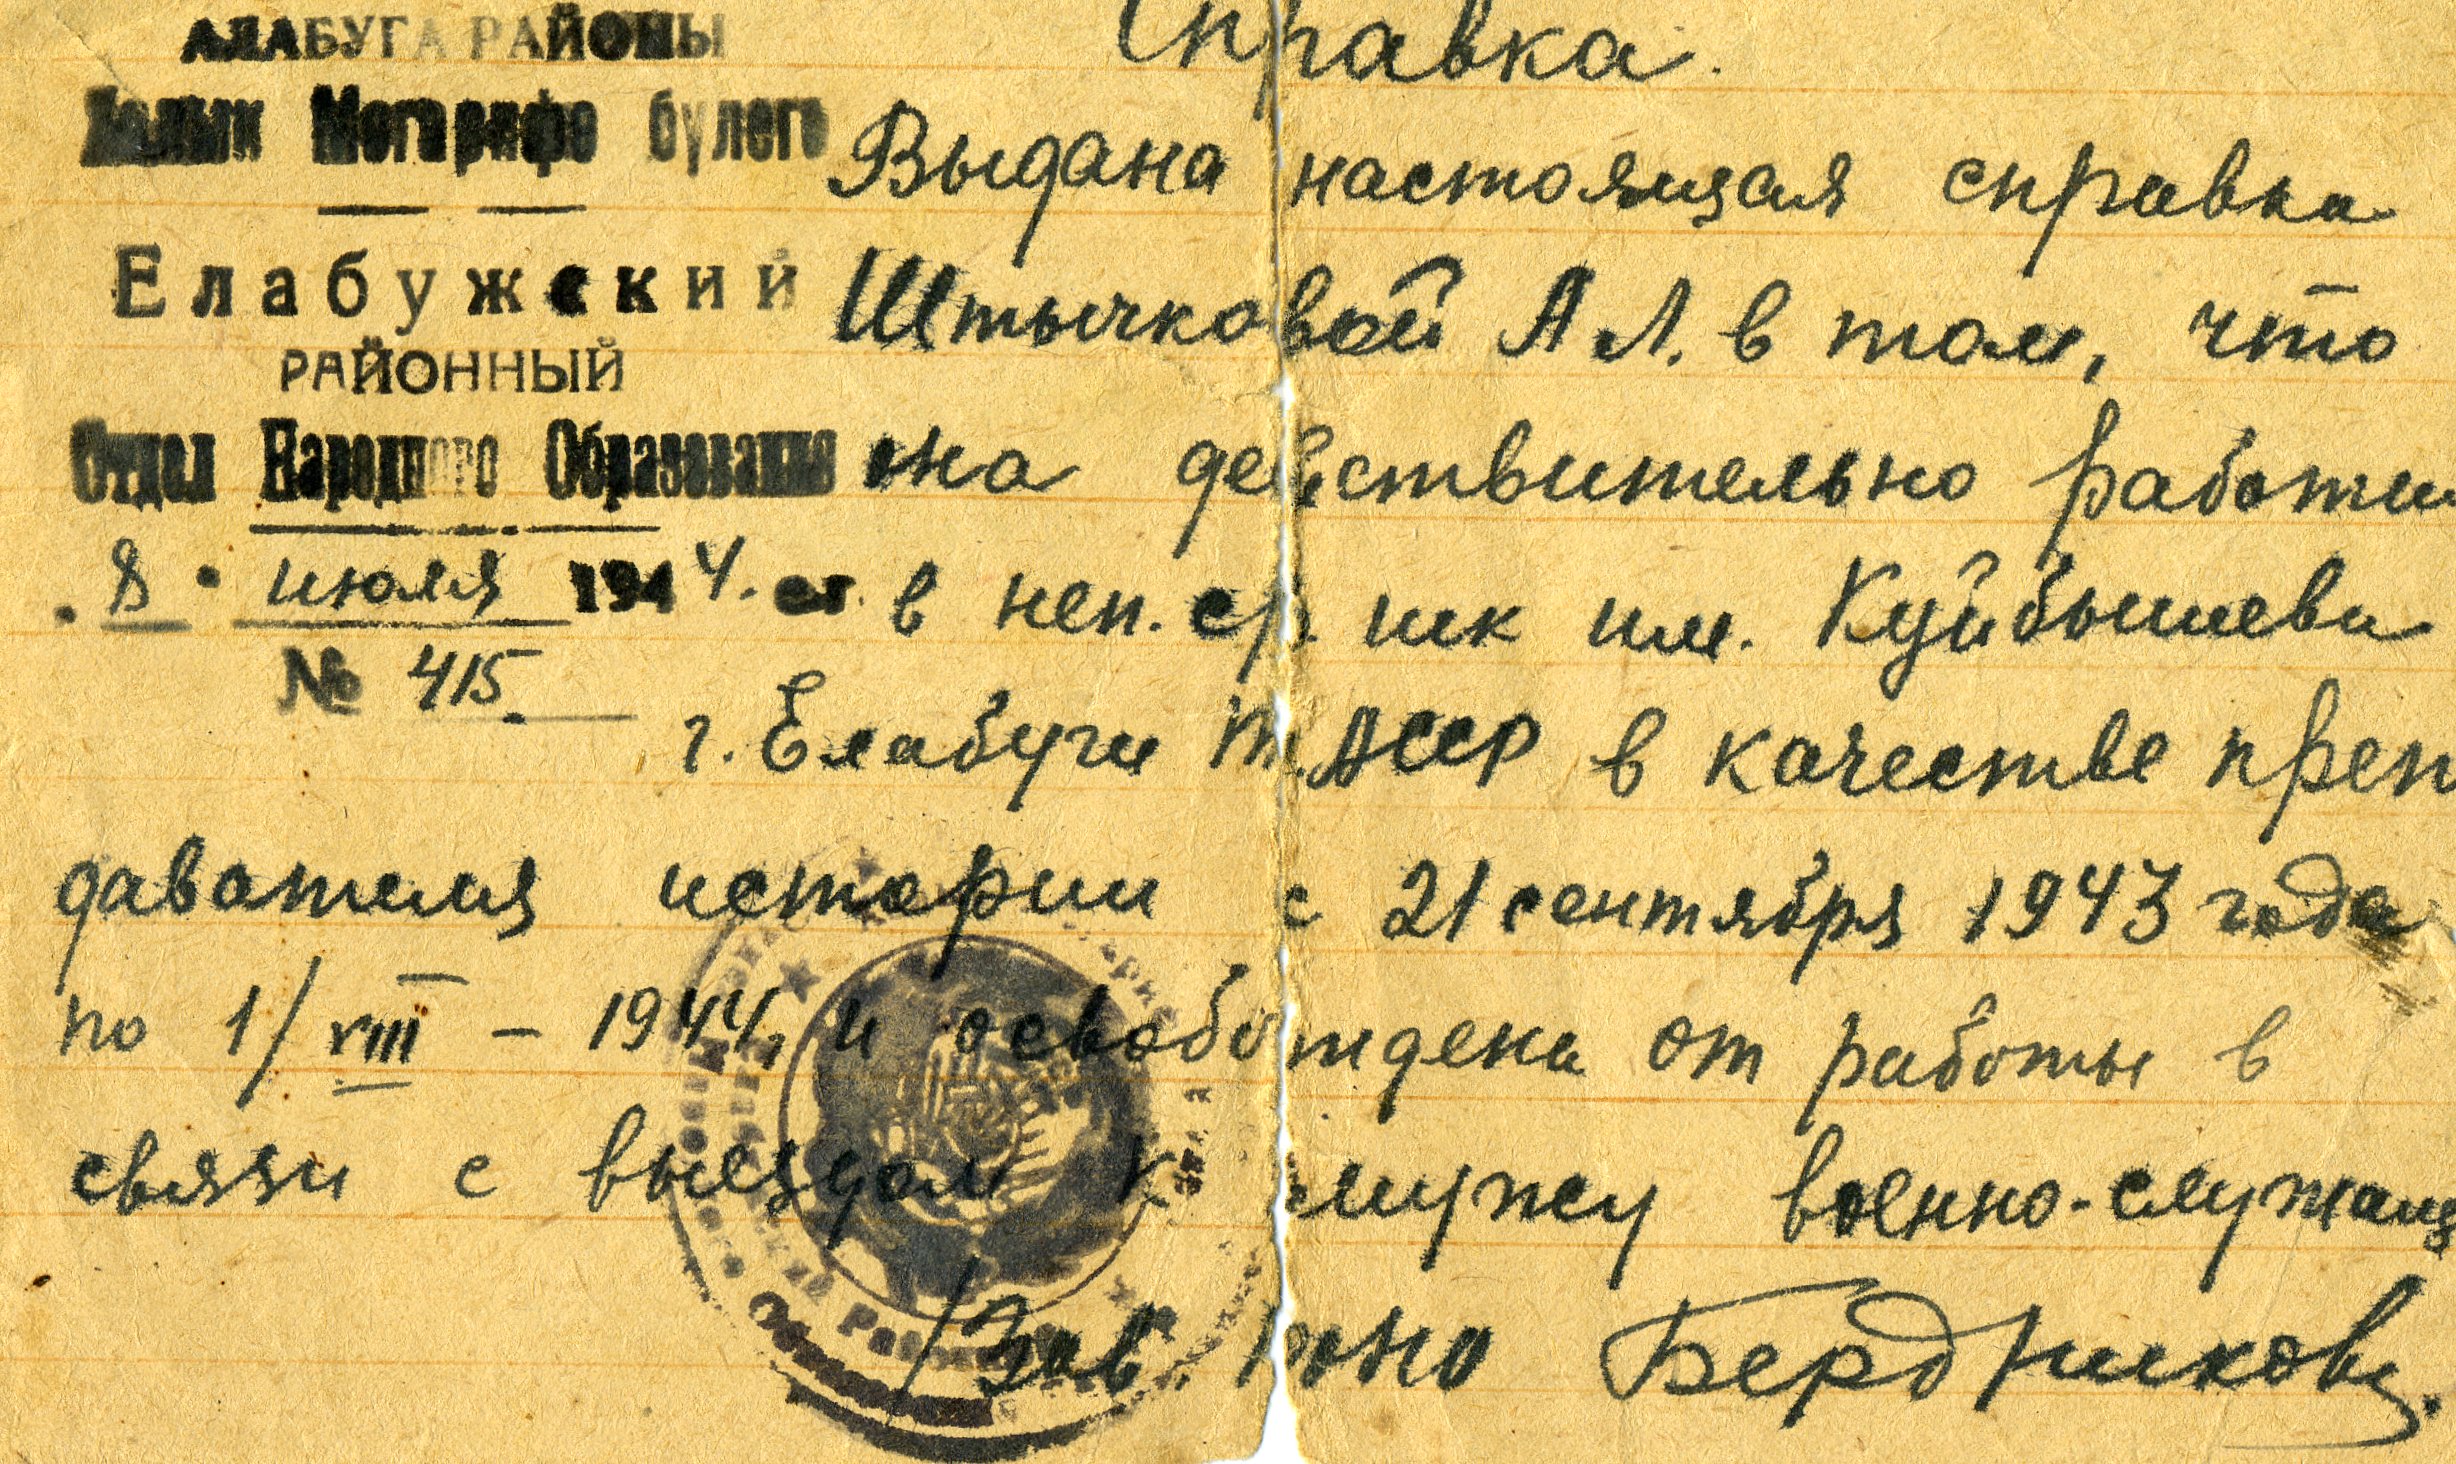 АЛАБУГА РАЙОНЫ
Халык Мәгариф бүлеге
Елабужский
РАЙОННЫЙ
Отдел Народного Образования
8 июля 1944. ст.
№ 415.
Справка.
Выдана настоящая справка
Штычковой А Л. в том, что
она действительно работи
в неп. ср. шк им. Куйбышева
г. Елабуги Т.АССР в качестве преп
давателя истории с 21 сентября 1943 года
по 1/VIII – 1944, и освобождена от работы в
связи с выездом к мужу военно-служащ
/Зав роно Бердникова.